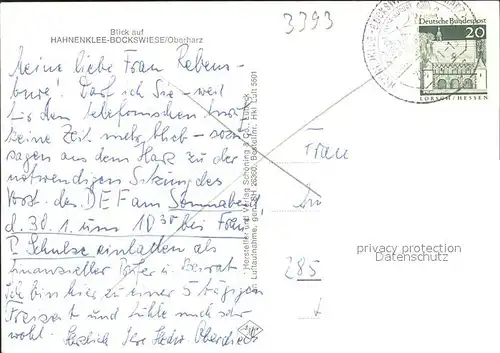 Blick auf
HAHNENKLEE-BOCKSWIESE/Oberharz
3393
Deutsche Bundespost
20
LORSCH/HESSEN
Meine liebe Frau Rebens-
! Darf ich Sie – weil
den telefonischen
keine Zeit mehr blieb – sozu
sagen aus dem Harz zu der
notwendigen Sitzung des
Vorst. des DEF am Sonnabend
d. 30. 1. um 10³⁰ bei Frau
P. Schulze einladen als
finanzieller Prüfer u. Beirat
Ich bin hier zu einer 5 tägigen
und fühle mich sehr
wohl. Herzlich Ihre Oberdieck
Hersteller und Verlag Schöning & Co., Lübeck
Luftaufnahme, gen. SH Bestellnr. Hkl Luft 5601
Frau
285
privacy protection
Datenschutz